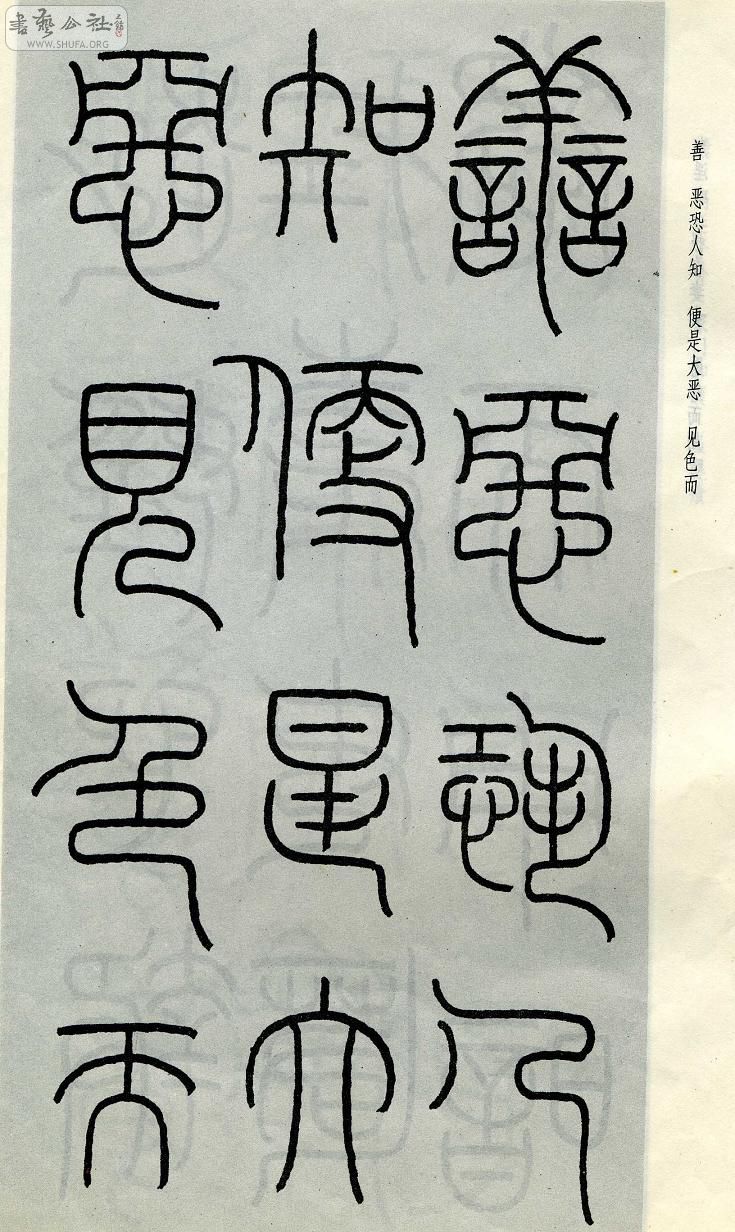 善惡恐人
知便是大
惡見色而
善 恶恐人知 便是大恶 而见色而
書藝公社
WWW.SHUFA.ORG